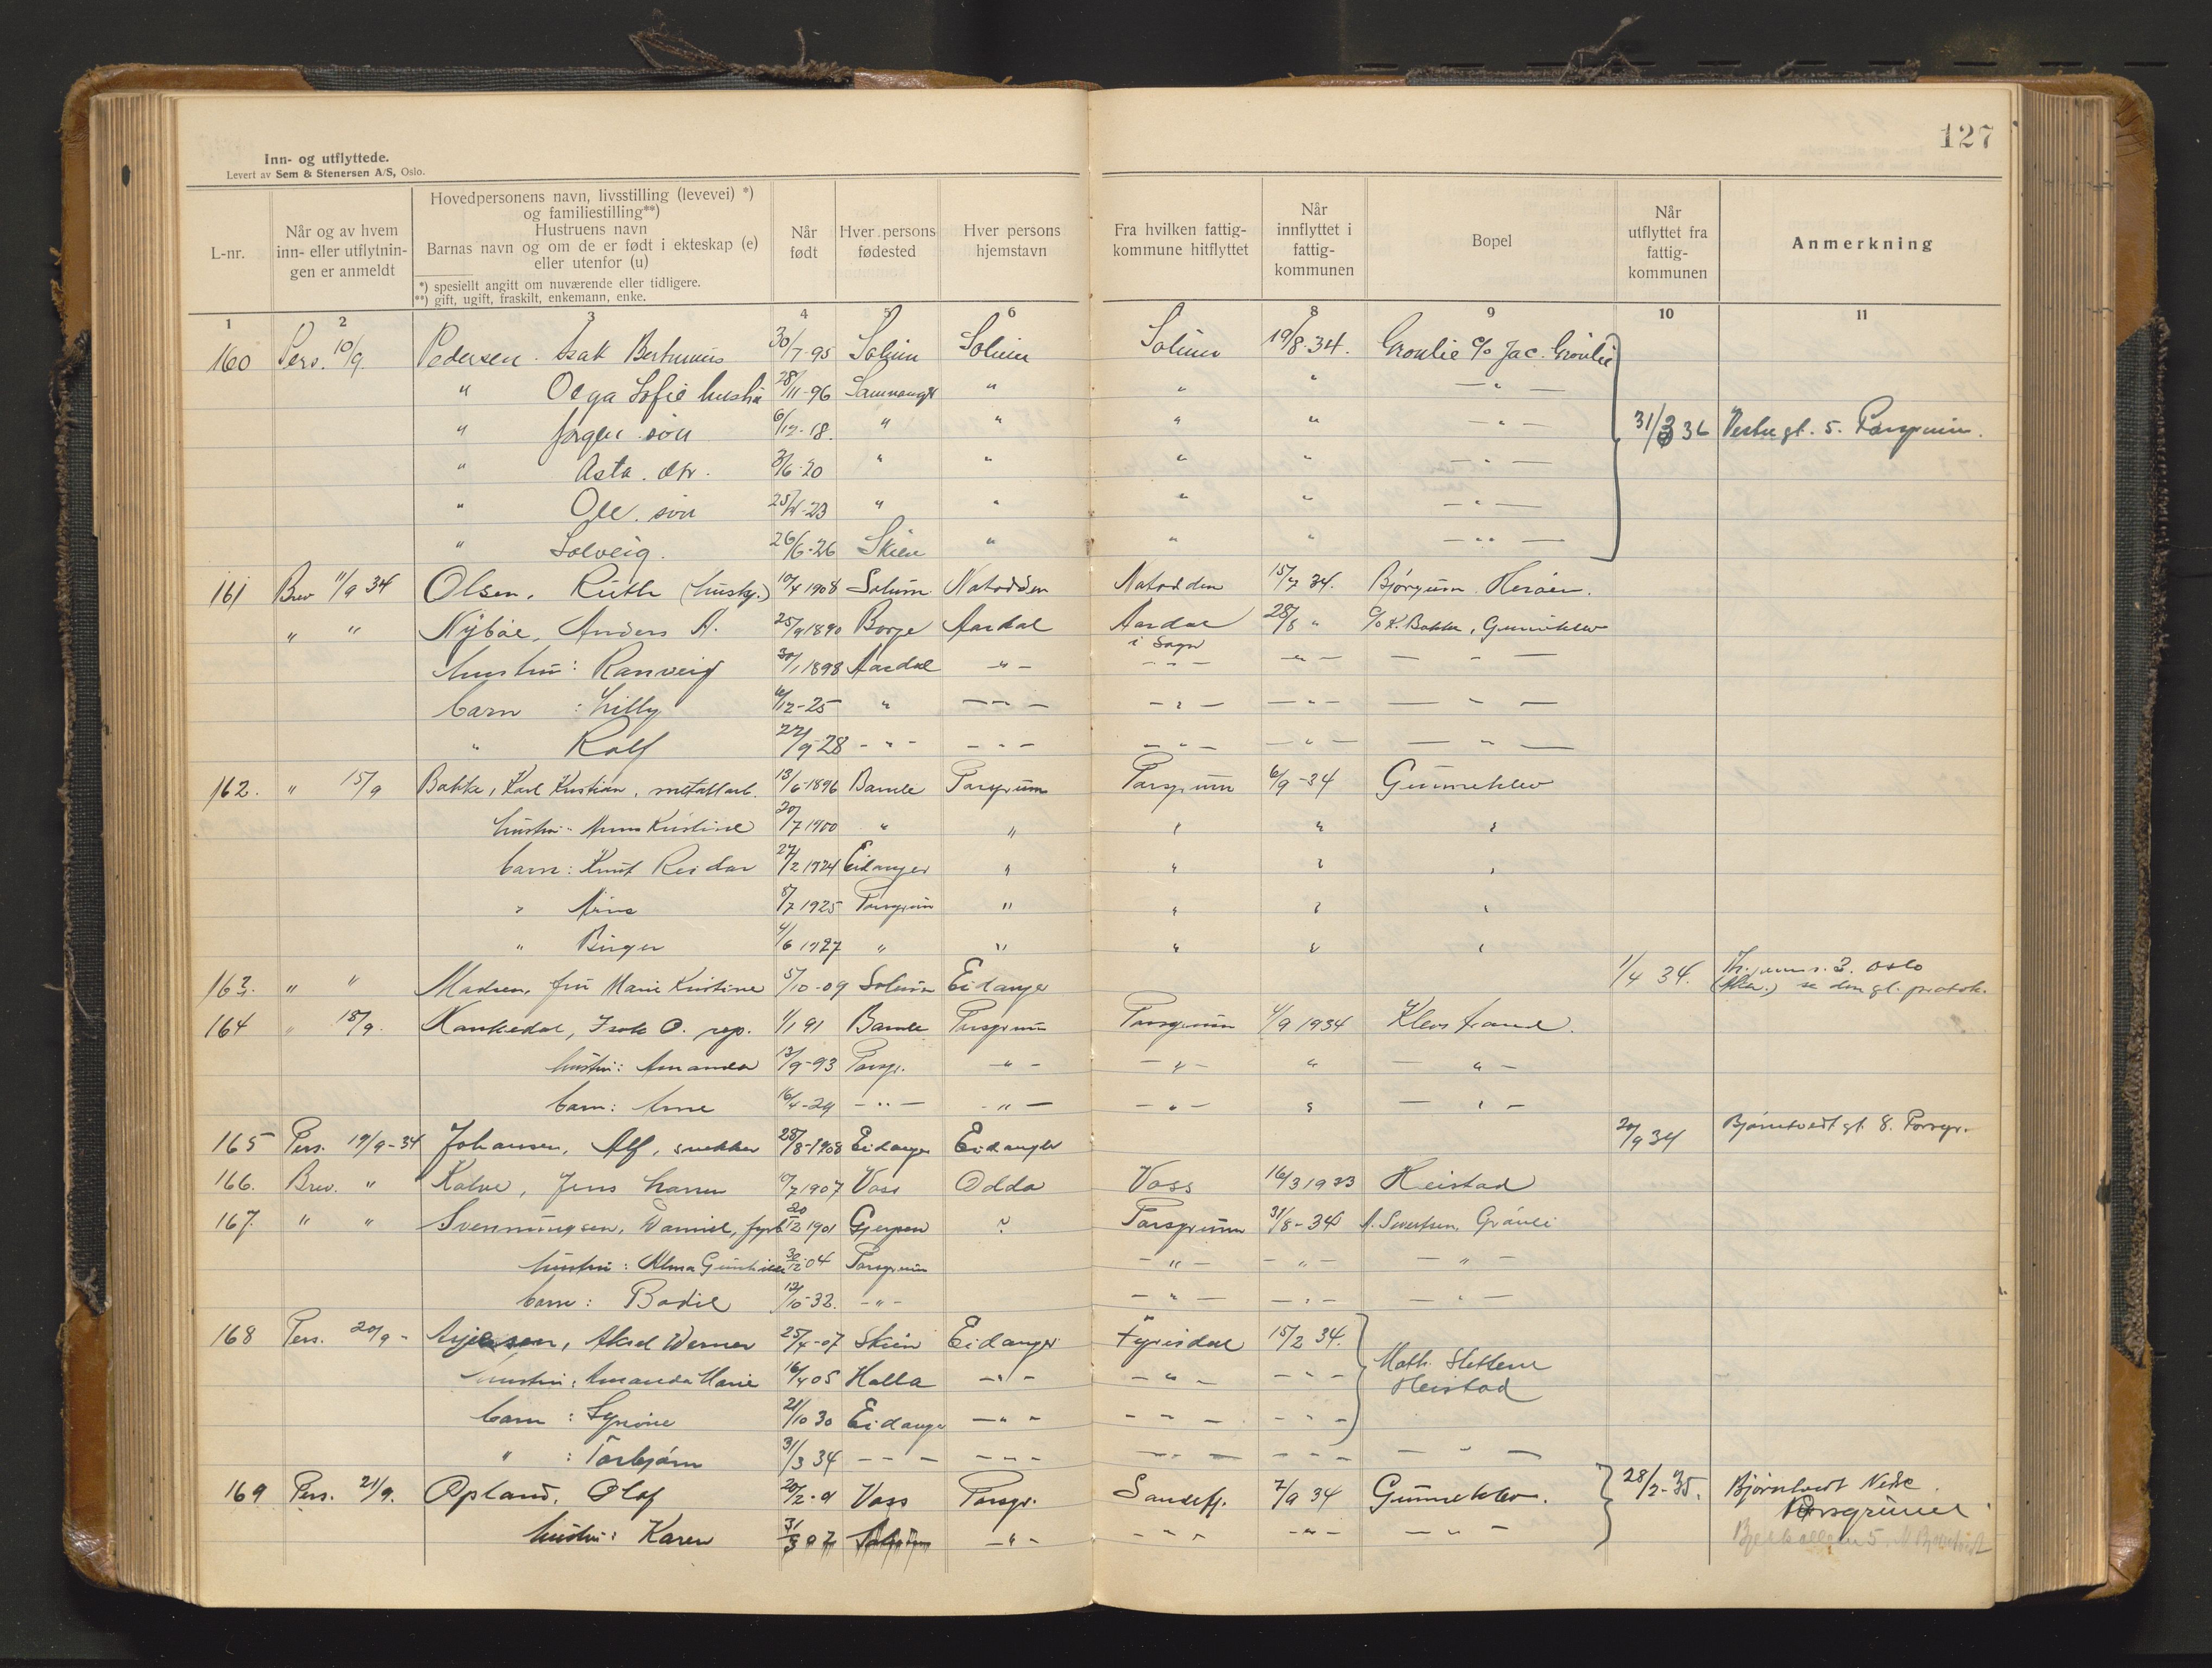 127
Inn- og utflyttede.
Levert av Sem & Stenersen A/S, Oslo.
L-nr. | Når og av hvem inn- eller utflytnin-gen er anmeldt | Hovedpersonens navn, livsstilling (levevei) *) og familiestilling**) Hustruens navn Barnas navn og om de er født i ekteskap (e) eller utenfor (u) *) spesiellt angitt om nuværende eller tidligere. **) gift, ugift, fraskilt, enkemann, enke. | Når født | Hver persons fødested | Hver persons hjemstavn | Fra hvilken fattig-kommune hitflyttet | Når innflyttet i fattig-kommunen | Bopel | Når utflyttet fra fattig-kommunen | Anmerkning
1 2 3 4 5 6 8 9 10 11
160 Pers. 10/9. Pedersen. Isak 30/7-95 Solum Solum Solum 19/8.34. Grønlie c/o Jac. Grønlie
" Olga Sofie hustru 28/11-96 " " " — " —
" Jørgen. søn 6/12-18. " " " " — " — 31/3 36 Vestregt. 5. Porsgrunn.
" Asta. dtr. /6-20 " " " " — " —
" Ole. søn 25/-23 " " " " — " —
" Solveig. 26/6-26 Skien " " " — " —
161 Brev 11/9 34 Olsen, Ruth (hushj.) 10/4 1908 Solum Notodden Notodden 15/7 34. Bjørgum. Herøen.
" " Nybøe, Anders A. 25/9 1890 Borge Aardal Aardal i Sogn 28/8 " c/o K. Bakke, Gunneklev
hustru: Ranveig 30/1 1898 Aardal — " — — " — — " — — " —
barn : Lilly /12-25 " — " — — " — — " — — " —
" Rolf 22/9-28 - " - — " — — " — — " — — " —
162. " 15/9 Bakke, Karl Kristian, metallarb. 13/6-1896 Bamle Porsgrunn Porsgrunn 6/9-34 Gunneklev
hustru: Anna Kristine 20/7 1900 " " " " "
barn: Knut Reidar 27/2 1924 Eidanger " " " "
" Arne 8/7 1925 Porsgrunn " " " "
" Birger /6 1927 " " " " "
163. " " Madsen, fru Marie Kristine 5/10-09 Solum Eidanger 1/4 34. Oslo se den gl. protok.
164 " 18/9. Isak O. rep. 1/1 91 Bamle Porsgrunn Porsgrunn 1/9 1934 Klevstrand.
hustru: Amanda 13/9-93 Porsgr. — " — — " — " — " —
barn: Arne 16/4-29 — " — — " — — " — " — " —
165 Pers. 19/9-34 Johansen, Alf, snekker 28/8-1908 Eidanger Eidanger 20/9 34 Bjørntvedtgt. 8. Porsgr.
166. Brev. " Kalve, Jens 10/7 1907 Voss Odda Voss 16/3 1933 Heistad
167. " " Svenningsen, Daniel, fyrb. 20/12 1901 Gjerpen ? Porsgrunn 31/8-34 A. Sivertsen, Grønli
hustru: Alma Gunhilde 30/12 04 Porsgrunn — " — — " — — " —
barn: Bodil 12/10-32. — " — — " — — " — — " —
168 Pers. 20/9- Aksel Werner 25/4-07 Skien Eidanger Fyrisdal 15/2 34. Math. Sletten Heistad
hustru: Amanda Marie 16/4 05 Holla — " — — " — — " —
barn : Synnøve 21/10 30 Eidanger — " — — " — — " —
" : Torbjørn 31/3 34 — " — — " — — " — — " — — " —
169 Pers. 21/9. Opland, Olaf 20/2-01 Voss Porsgr. Sandefj. 7/9 34 Gunneklev. 28/2-35. Bjørntvedt Nedre Porsgrunn
hustru: Karen 31/3 07 — " — — " — — " — — " — 5. N. Bjørntvedt